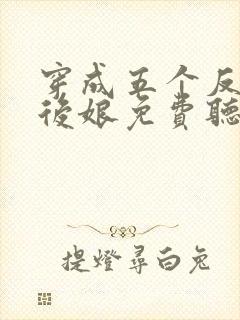 穿成五个反
後娘免費聽
提燈尋白兔